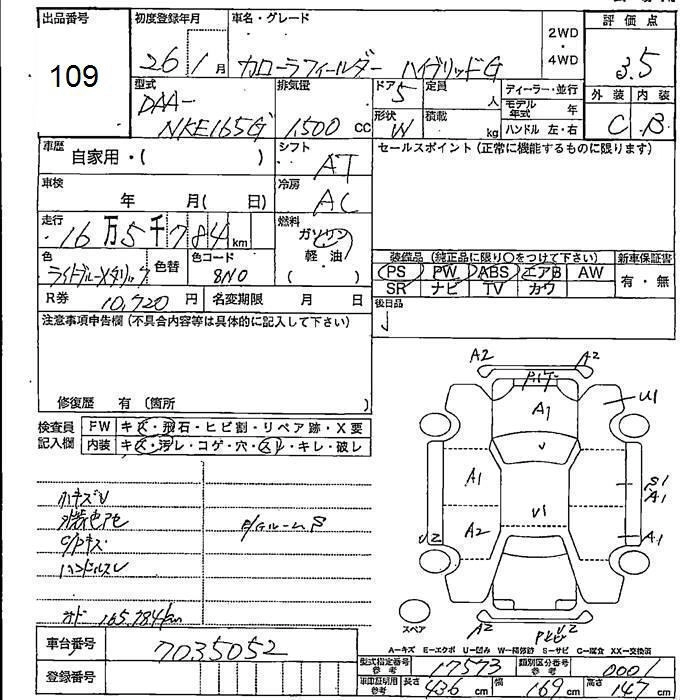 出品番号 初度登録年月 車名・グレード 評価点
109 26 1月 カローラフィールダー ハイブリッドG 2WD・4WD 3.5
型式 排気量 ドア 定員 ディーラー・並行 外装 内装
DAA-NKE165G 1,500cc 5 人 モデル年式 年 C B
形状 積載 ハンドル 左・右
W kg
車歴 シフト セールスポイント(正常に機能するものに限ります)
自家用・( ) AT
車検 冷房
年 月( 日) AC
走行 燃料
16万5千784km ガソリン
軽・油
( )
色 色替 色コード
ライトブルーメタリック 8N0
装備品(純正品に限り〇をつけて下さい) 新車保証書
PS PW ABS エアB AW 有・無
SR ナビ TV カワ
R券 10,720円 名変期限 月 日 後日品
注意事項申告欄(不具合内容等は具体的に記入して下さい)
修復歴 有(箇所 )
検査員記入欄 FW キズ・飛石・ヒビ割・リペア跡・X要
内装 キズ・汚レ・コゲ・穴・スレ・キレ・破レ
A2 A2
A1 U1
A1 S1
A1
U1
A2 A1
U2
A2 A2
スペア
ハンドルスレ
オド 165,784km
A-キズ E-エクボ U-凹み W-補修跡 S-サビ C-腐食 XX-交換済
車台番号 7035052
型式指定番号 参考 17573 類別区分番号 参考 0001
登録番号
車庫証明用 参考 長さ 436cm 幅 169cm 高さ 147cm